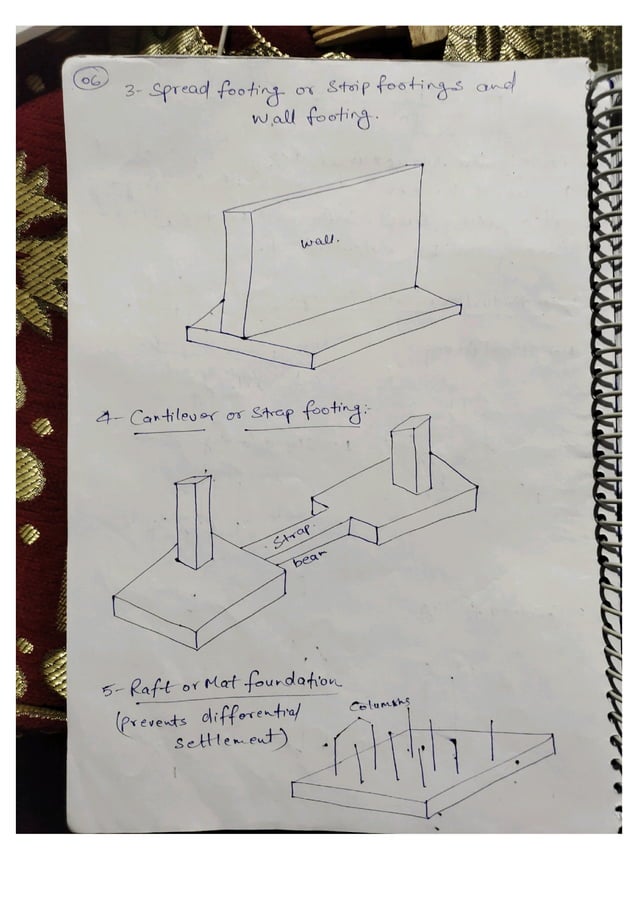 06
3- Spread footing or Strip footings and
Wall footing.
Wall.
4- Cantilever or Strap footing:-
Strap
beam
5- Raft or Mat foundation
(prevents differential
settlement)
Columns